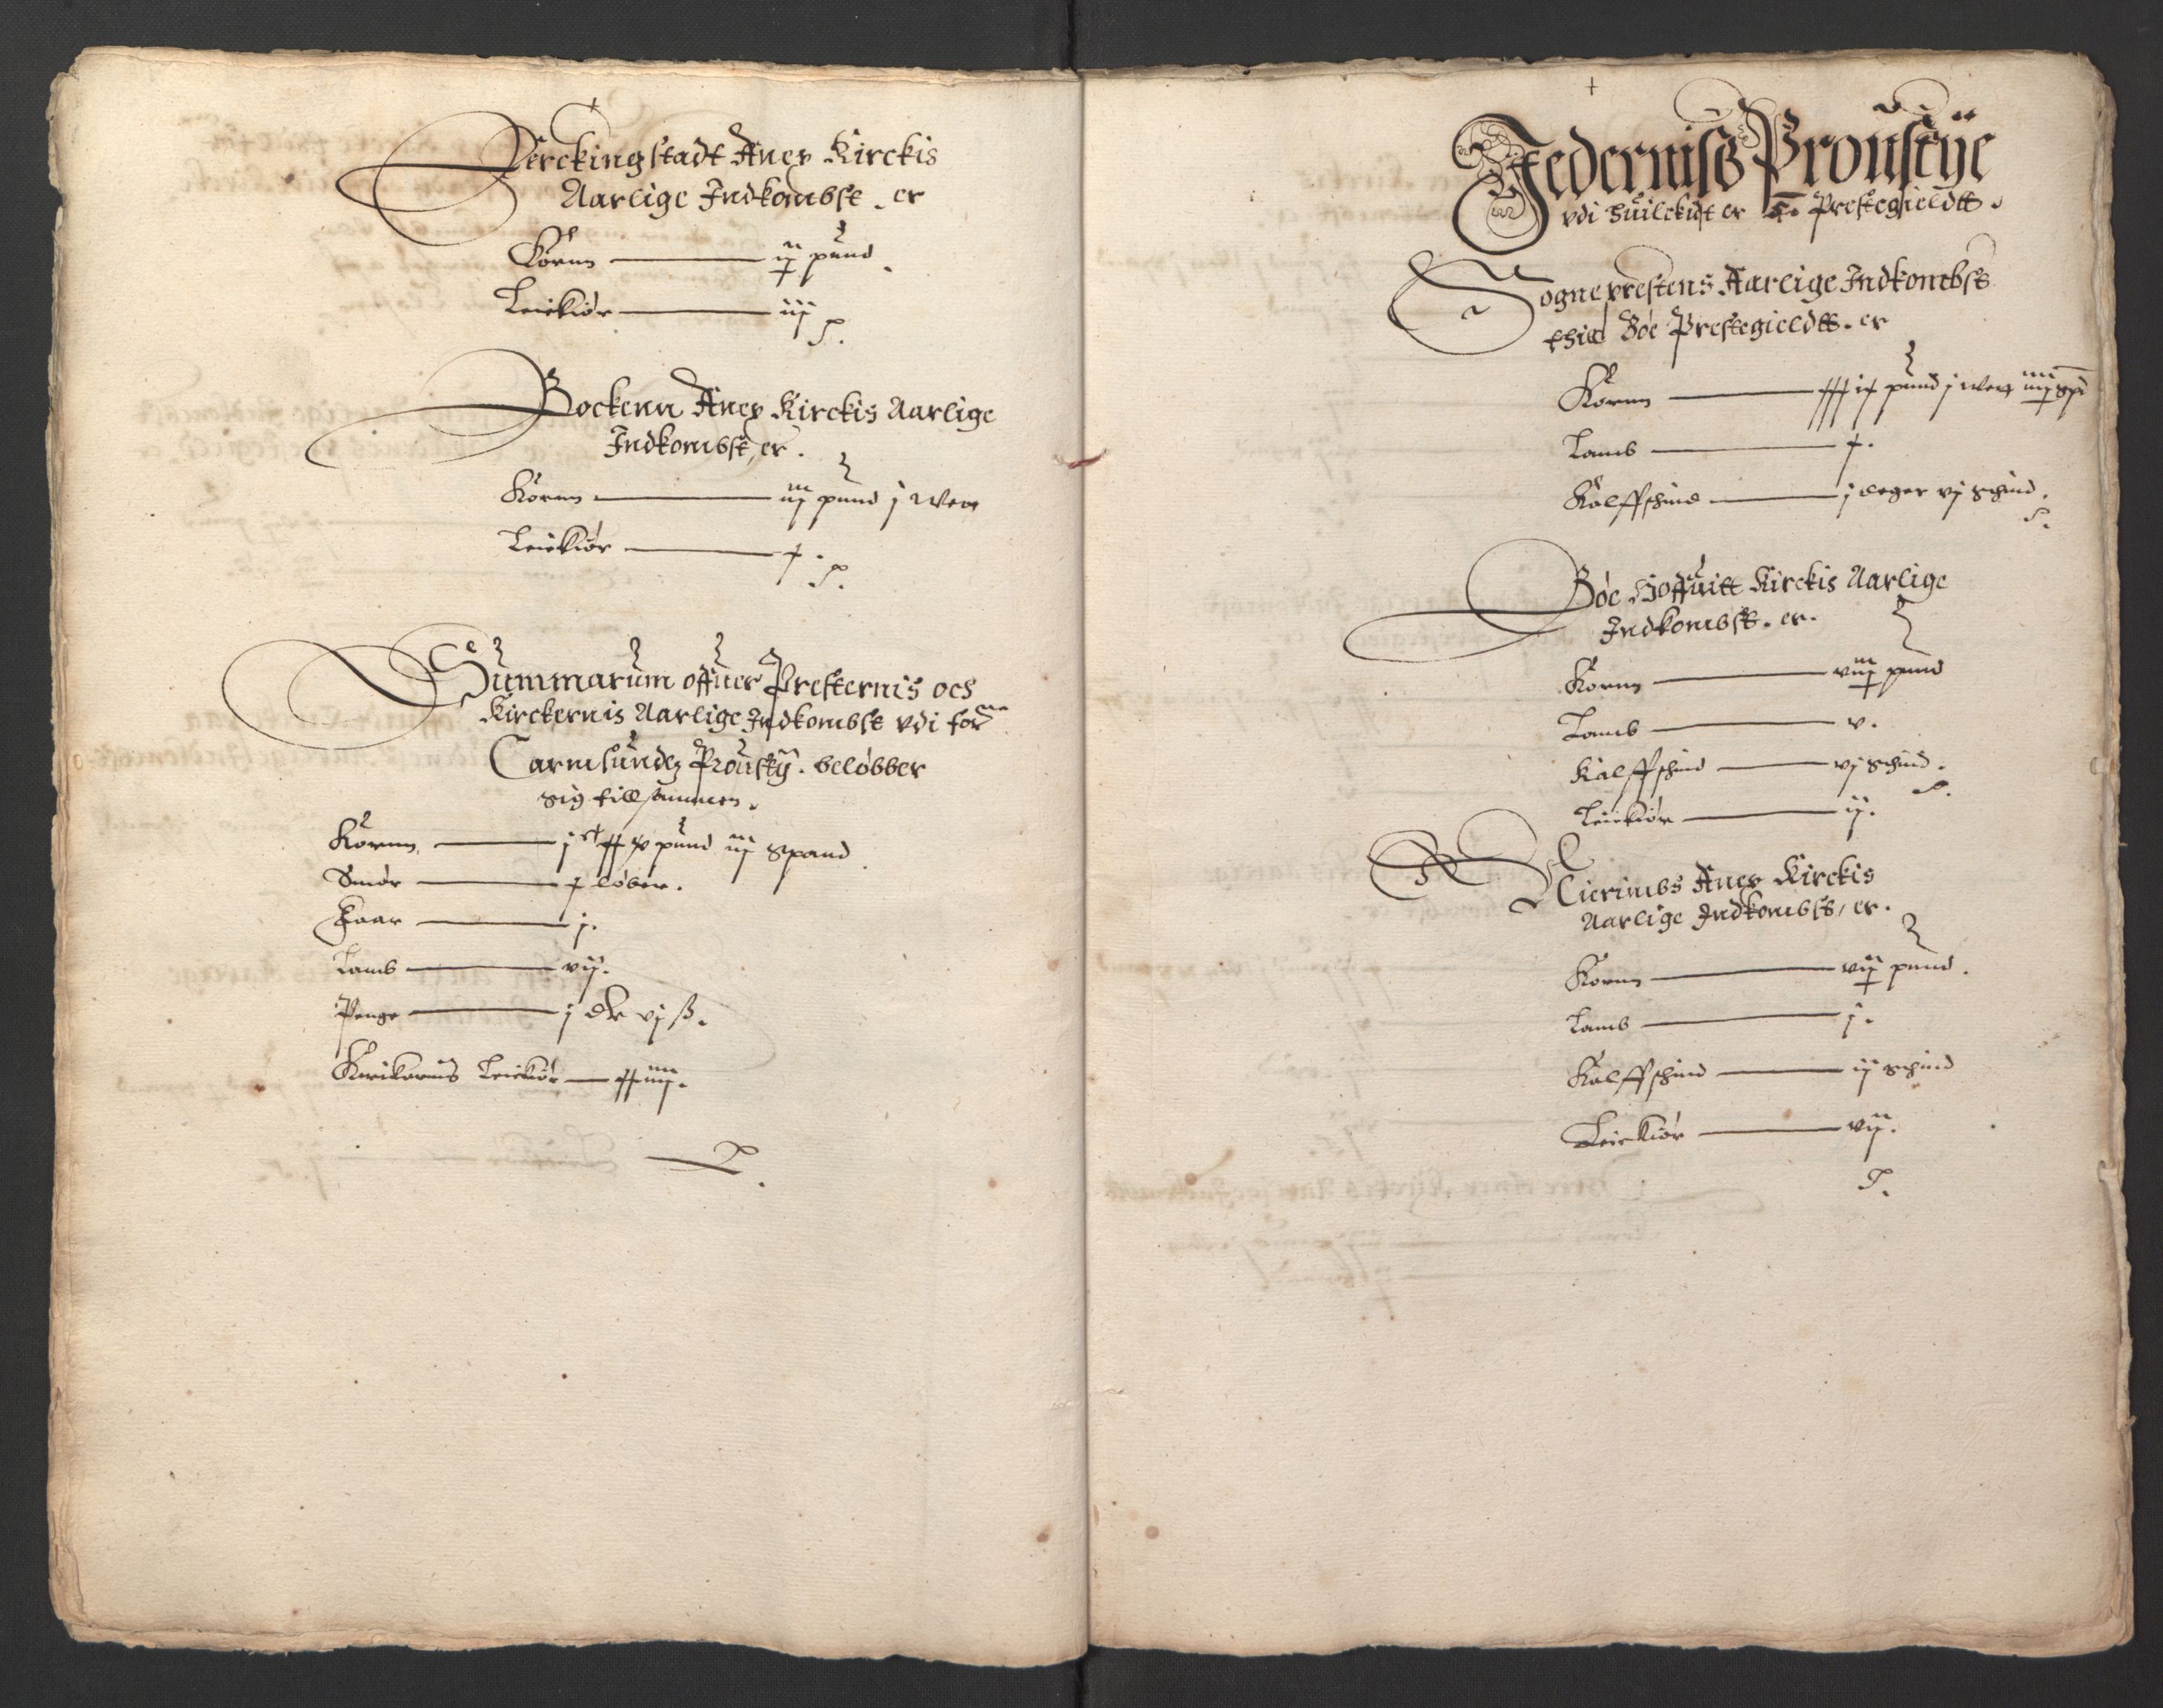 Ferckingstadt Anex Kirckis
Aarlige Indkombst . er
Kornn ij pund .
Leiekiør iij
Bockenn Anex Kirckis Aarlige
Indkombst, er .
Kornn iij pund j weu
Leiekiør x .
Summarum offuer Presternis och
Kirckernis Aarlige Indkombst vdi for:ne
Carmsundz Prousty . beløbber
sig till sammen .
Kornn xx pund iij spand
Smør x løber .
Faar j .
Lamb vij .
Penge j dlr vj ß .
Kirckernis Leiekiør xxiiij .
Jedernisß Proustye
vdi huilckidt er Prestegieldtt .
Sogneprestens Aarlige Indkombst
thill Bøe Prestegieldtt . er
Kornn xxx ix pund j weu iiij spd
Lamb x .
Kalffskind j deger vj skind .
Bøe Hoffuitt Kirckis Aarlige
Indkombst . er .
Kornn viij pund
Lamb v .
Kalffskind vj skind .
Leiekiør ij .
Nierimbs Anex Kirckis
Aarlige Indkombst, er .
Kornn vij pund .
Lamb j .
Kalffskind ij skind
Leiekiør vij .